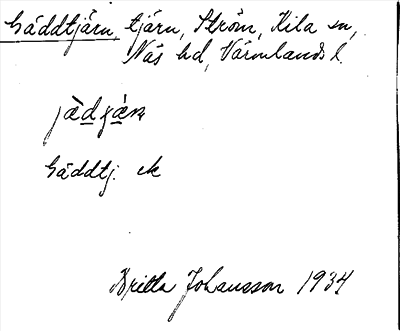 Gäddtjärn, tjärn, Ström, Kila sn,
Näs hd, Värmlands l.
jæ̀dɟæ̀ɳ
Gäddtj. ek
Britta Johansson 1934